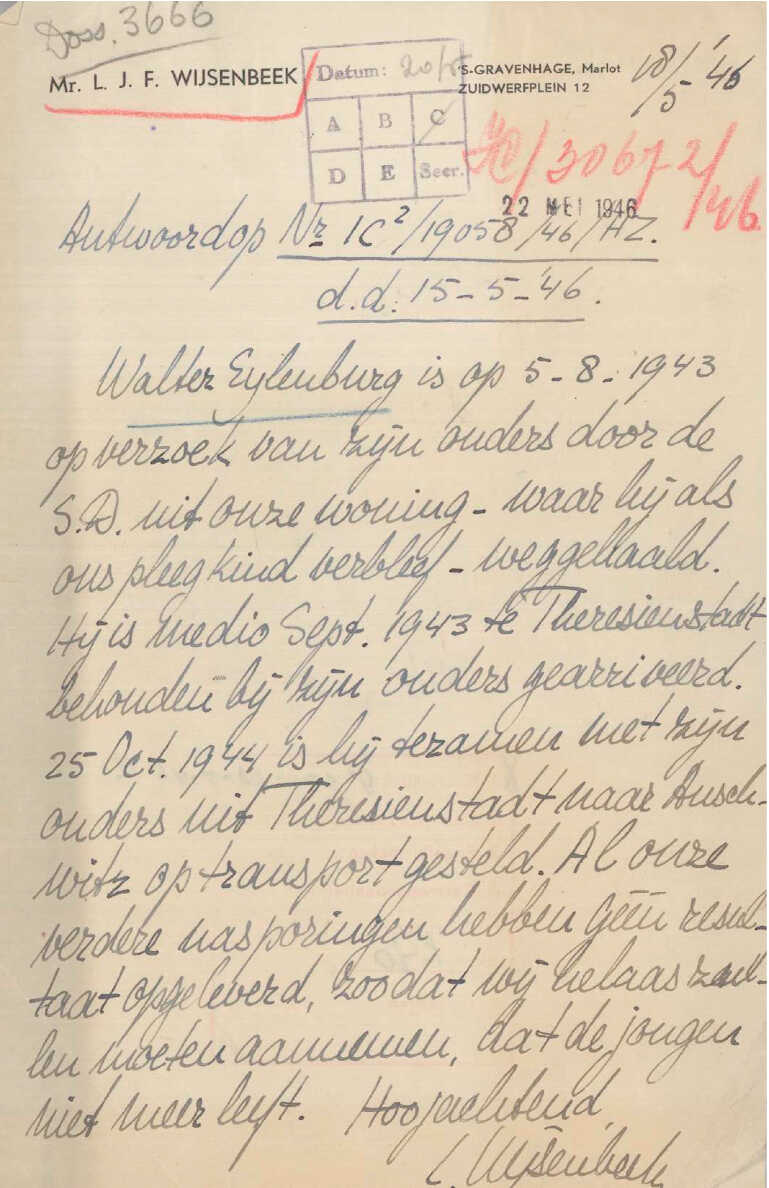 Doss. 3666
Mr. L. J. F. WIJSENBEEK
Datum: 20/5
'S-GRAVENHAGE, Marlot
ZUIDWERFPLEIN 12
18/5-'46
A B C
D E Secr.
30672/46
22 MEI 1946
Antwoord op Nr. 1C²/19058/46/HZ.
d.d. 15-5-'46.
Walter Eylenburg is op 5-8-1943
op verzoek van zijn ouders door de
S.D. uit onze woning - waar hij als
ons pleegkind verbleef - weggehaald.
Hij is medio Sept. 1943 te Theresienstadt
behouden bij zijn ouders gearriveerd.
25 Oct. 1944 is hij tezamen met zijn
ouders uit Theresienstadt naar Ausch-
witz op transport gesteld. Al onze
verdere nasporingen hebben géén resul-
taat opgeleverd, zoodat wij helaas zul-
len moeten aannemen, dat de jongen
niet meer leeft. Hoogachtend,
L. Wijsenbeek